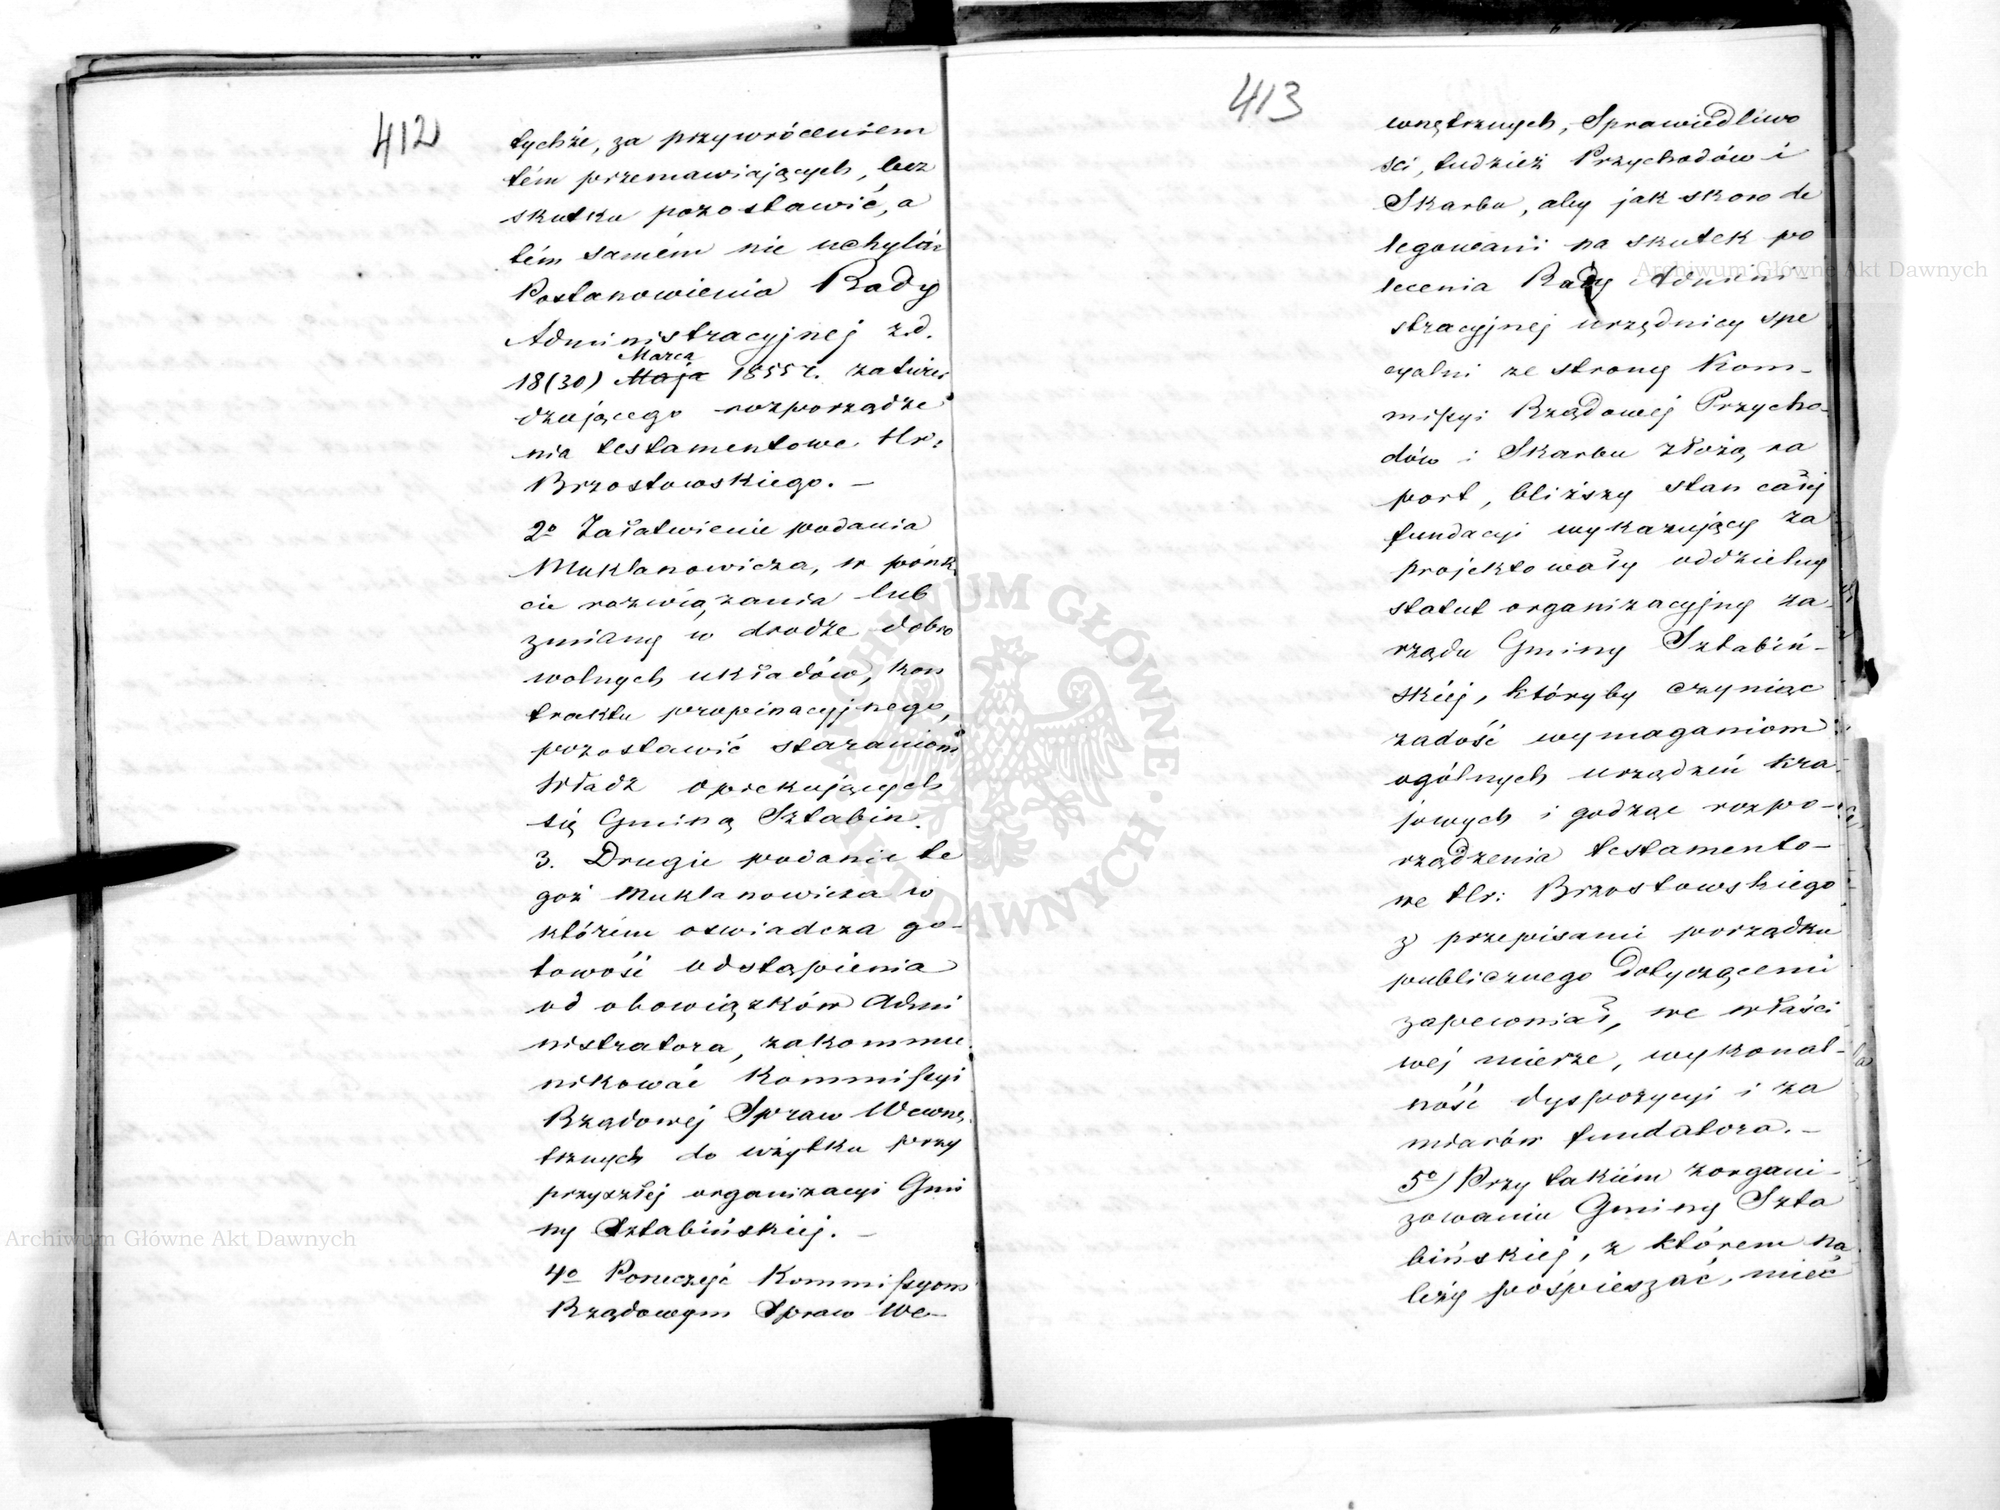 412
tychże, za przywróceniem
tém przemawiających, bez
skutku pozostawić, a
tém samém nie uchylać
Postanowienia Rady
Administracyjnej z d.
Marca
18(30) Maja 1855 r. zatwier
dzającego rozporządze
nia testamentowe Hr:
Brzostowskiego. –
2o Załatwienie podania
Muklanowicza, w punk
cie rozwiązania lub
zmiany w drodze dobro
wolnych układów, kon
traktu propinacyjnego,
pozostawić staraniom
Władz opiekujących
się Gminą Sztabin.
3. Drugie podanie te
goż Muklanowicza w
którém oswiadcza go-
towość odstąpienia
od obowiązków Admi
nistratora, zakommu
nikować Kommissyi
Rządowej Spraw Wewnę
trznych do użytku przy
przyszłej organizacyi Gmi
ny Sztabińskiej. –
4o Poruczyć Kommissyom
Rządowym Spraw We-
413
wnętrznych, Sprawiedliwo
sci, tudzież Przychodów i
Skarbu, aby jak skoro de
legowani na skutek po
lecenia Rady Admini-
stracyjnej urzędnicy spe
cyalni ze strony Kom-
missyi Rządowej Przycho-
dów i Skarbu złożą ra
port, bliższy stan całéj
fundacyi wykazujący za
projektowały oddzielny
statut organizacyjny za-
rządu Gminy Sztabiń-
skiej, któryby czyniąc
zadość wymaganiom
ogólnych urządzeń kra
jowych i godząc rozpo-
rządzenia testamento-
we Hr: Brzostowskiego
z przepisami porządku
publicznego dotyczącemi
zapewniał, we właści
wej mierze, wykonal-
ność dyspozycyi i za
miarów fundatora. –
5o) Przy takiém zorgani-
zowaniu Gminy Szta
bińskiej, z którem na
leży pośpieszać, mieć
Archiwum Główne Akt Dawnych
Archiwum Główne Akt Dawnych
ARCHIWUM GŁÓWNE AKT DAWNYCH